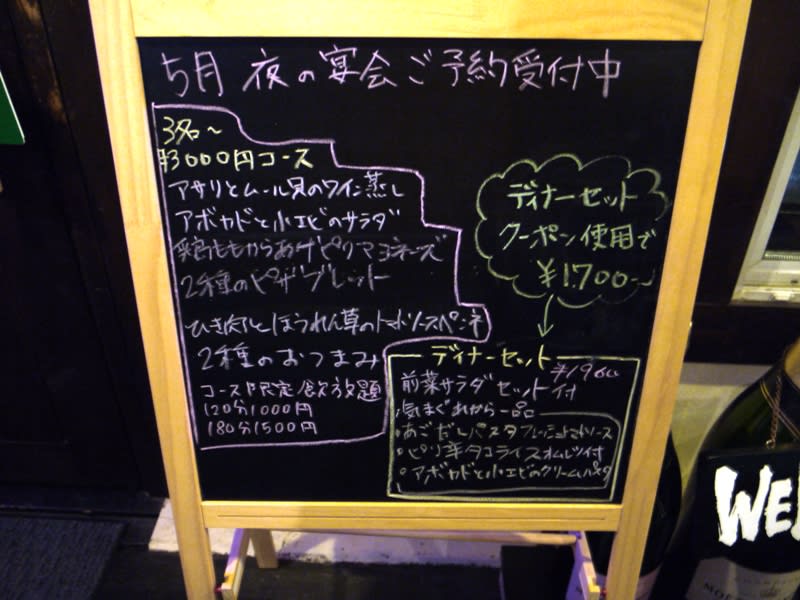 5月 夜の宴会ご予約受付中
3名～
¥3000円コース
アサリとムール貝のワイン蒸し
アボカドと小エビのサラダ
鶏ももからあげピリマヨネーズ
2種のピザブレット
ひき肉とほうれん草のトマトソースペンネ
2種のおつまみ
コース限定飲放題
120分1000円
180分1500円
ディナーセット
クーポン使用で
¥1.700-
ディナーセット
¥1960
前菜サラダセット付
気まぐれから一品
・あごだしパスタフレッシュトマトソース
・ピリ辛タコライスオムレツ付
・アボカドと小エビのクリームパスタ
WE